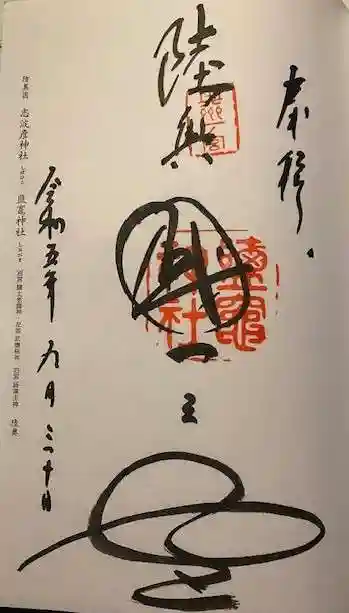 奉拝
陸奥
國
一
之
宮
鹽竈
神社
令和五年九月三十日
志波彦神社 鹽竈神社